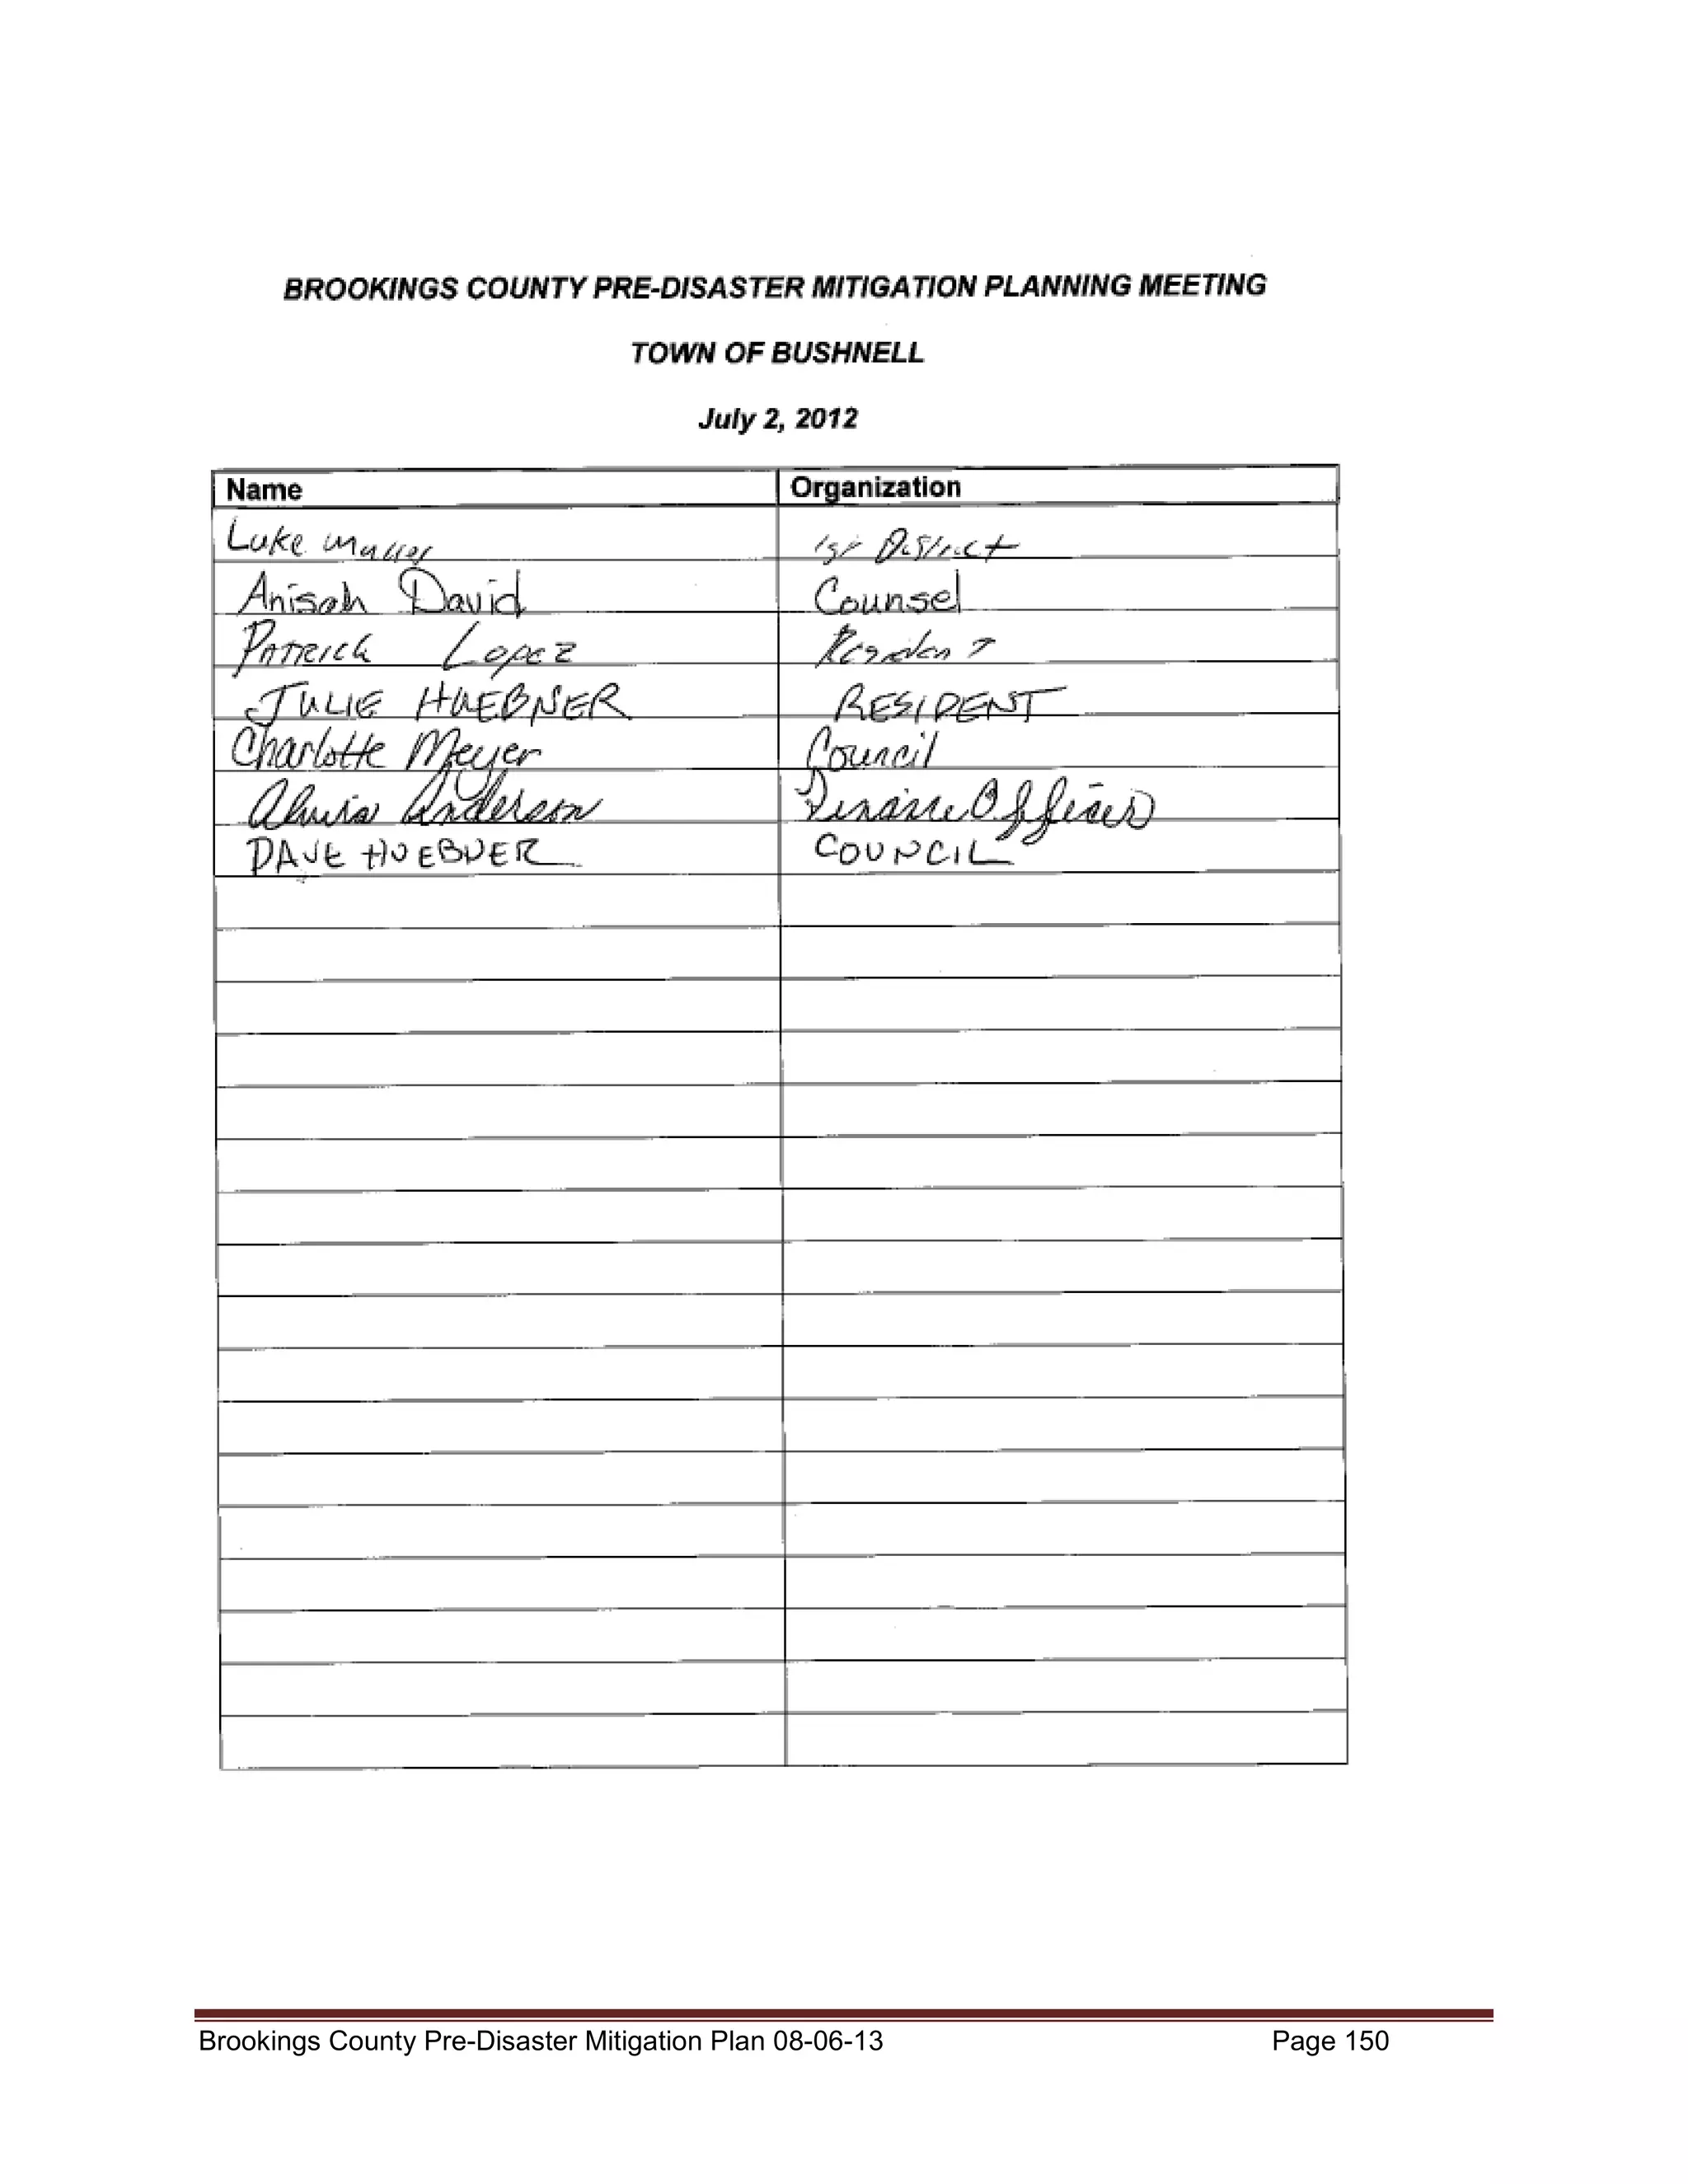 BROOKINGS COUNTY PRE-DISASTER MITIGATION PLANNING MEETING
TOWN OF BUSHNELL
July 2, 2012
Name Organization
Luke 1st District
Anisah David Counsel
PATRICK Lopez Resident
JULIE HUEBNER RESIDENT
Charlotte Meyer Council
Anderson Finance Officer
DAVE HUEBNER COUNCIL
Brookings County Pre-Disaster Mitigation Plan 08-06-13 Page 150